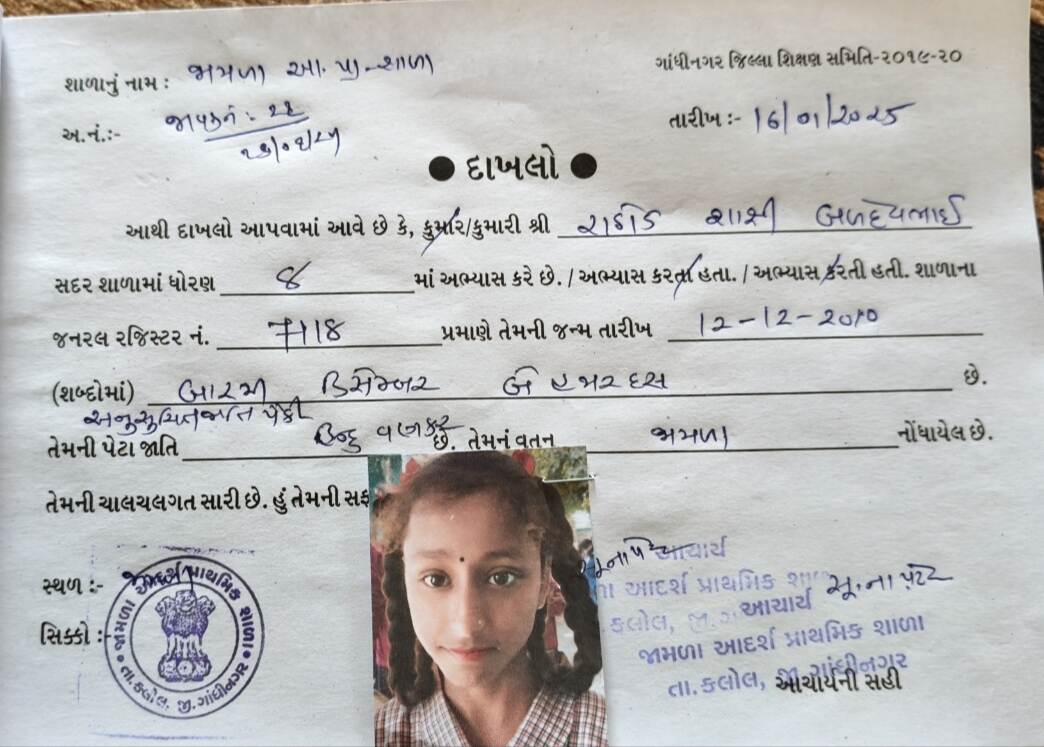 ગાંધીનગર જિલ્લા શિક્ષણ સમિતિ-૨૦૧૯-૨૦
શાળાનું નામ : જામળા આ. પ્રા. શાળા
અ.નં.:- જાવકનં : ૨૨
તારીખ :- 16/01/2025
● દાખલો ●
આથી દાખલો આપવામાં આવે છે કે, કુમાર/કુમારી શ્રી રાઠોડ બળદેવભાઈ
સદર શાળામાં ધોરણ 8 માં અભ્યાસ કરે છે. / અભ્યાસ કરતા હતા. / અભ્યાસ કરતી હતી. શાળાના
જનરલ રજિસ્ટર નં. 7118 પ્રમાણે તેમની જન્મ તારીખ 12-12-2010
(શબ્દોમાં) બારમી ડિસેમ્બર બે હજાર દસ છે.
અનુસુચિતજાતિ પૈકી
તેમની પેટા જાતિ હિન્દુ વણકર છે. તેમનું વતન જામળા નોંધાયેલ છે.
તેમની ચાલચલગત સારી છે. હું તેમની સફ
સ્થળ :- જામળા
સિક્કો :-
જામળા આદર્શ પ્રાથમિક શાળા
તા. કલોલ, જી. ગાંધીનગર
આચાર્ય
આદર્શ પ્રાથમિક
કલોલ, જી.
આચાર્ય
જામળા આદર્શ પ્રાથમિક શાળા
તા. કલોલ, જી. ગાંધીનગર
આચાર્યની સહી